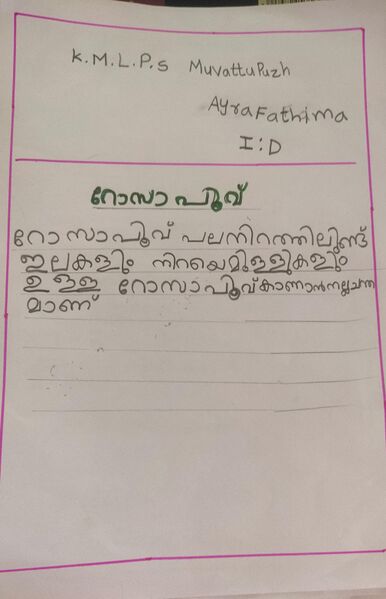 K.M.L.P.S Muvattupuzh
Ayra Fathima
I:D
റോസാപൂവ്
റോസാപൂവ് പലനിറത്തിലുണ്ട്
ഇലകളും നിറയെമുള്ളികളും
ഉള്ള റോസാപൂവ്കാണാൻനല്ലചന്ത
മാണ്